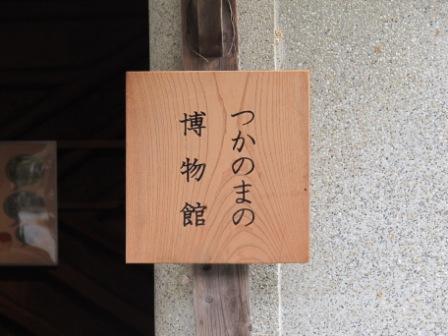 つかのまの
博物館